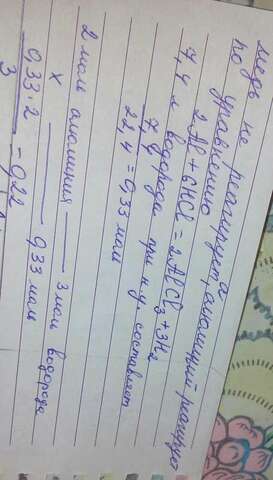 медь не реагирует, а алюминий реагирует
по уравнению
2Al + 6HCl = 2AlCl3 + 3H2
7,4 л водорода при н.у. составляет
7,4
22,4 = 0,33 моль
2 моль алюминия — 3 моль водорода
x — 0,33 моль
0,33·2
3 = 0,22